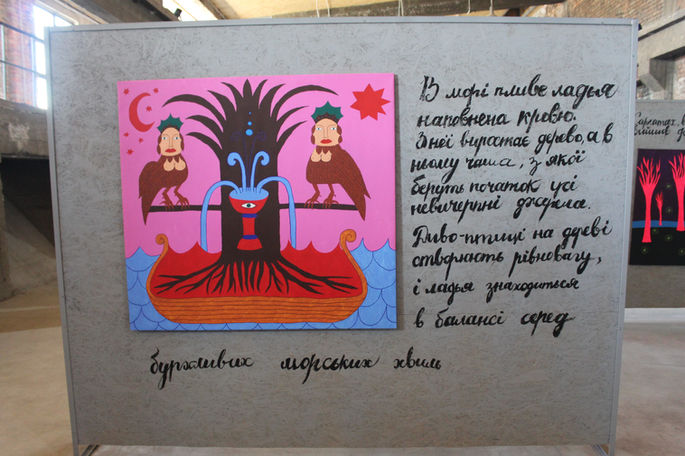 В морі пливе ладья
наповнена кров'ю.
З неї виростає дерево, а в
ньому чаша, з якої
беруть початок усі
невичерпні джерела.
Диво-птиці на древі
створюють рівновагу,
і ладья знаходиться
в балансі серед
бурхливих морських хвиль